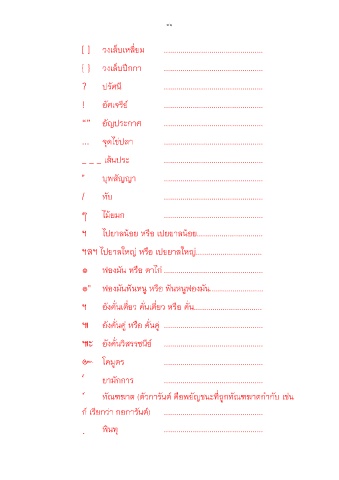 [ ] วงเล็บเหลี่ยม ................................................
{ } วงเล็บปีกกา ................................................
? ปรัศนี ................................................
! อัศเจรีย์ ................................................
“” อัญประกาศ ................................................
... จุดไข่ปลา ................................................
_ _ _ เส้นประ ................................................
" บุพสัญญา ................................................
/ ทับ ................................................
ๆ ไม้ยมก ................................................
ฯ ไปยาลน้อย หรือ เปยยาลน้อย................................
ฯลฯ ไปยาลใหญ่ หรือ เปยยาลใหญ่................................
๏ ฟองมัน หรือ ตาไก่ ................................................
๏" ฟองมันฟันหนู หรือ ฟันหนูฟองมัน..........................
ฯ อังคั่นเดี่ยว คั่นเดี่ยว หรือ คั่น................................
๚ อังคั่นคู่ หรือ คั่นคู่ ................................................
๚ะ อังคั่นวิสรรชนีย์ ................................................
๛ โคมูตร ................................................
๎ ยามักการ ................................................
์ ทัณฑฆาต (ตัวการันต์ คือพยัญชนะที่ถูกทัณฑฆาตกำกับ เช่น
ก์ เรียกว่า กอการันต์) ................................................
ฺ พินทุ ................................................